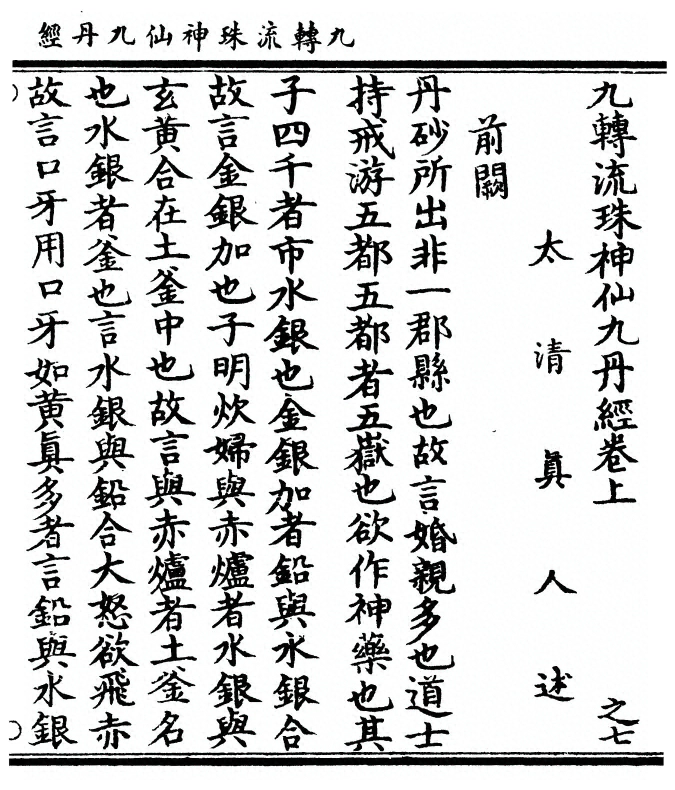 九轉流珠神仙九丹經
九轉流珠神仙九丹經卷上
之七
太清眞人述
前闕
丹砂所出非一郡縣也故言婚親多也道士
持戒游五都五都者五嶽也欲作神藥也其
子四千者市水銀也金銀加者鉛與水銀合
故言金銀加也子明炊婦與赤爐者水銀與
玄黃合在土釜中也故言與赤爐者土釜名
也水銀者釜也言水銀與鉛合大怒欲飛赤
故言口牙用口牙如黃眞多者言鉛與水銀